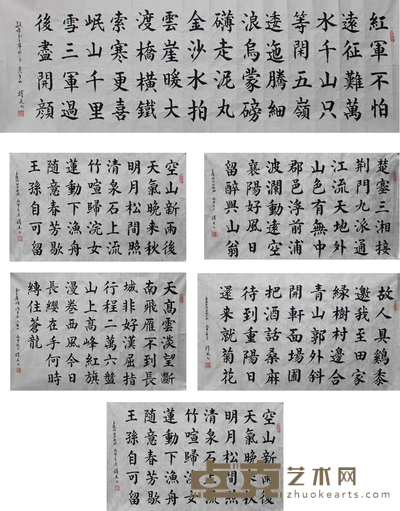 紅軍不怕
遠征難萬
水千山只
等閑五嶺
逶迤騰細
浪烏蒙磅
礴走泥丸
金沙水拍
雲崖暖大
渡橋橫鐵
索寒更喜
岷山千里
雪三軍過
後盡開顏
空山新雨後
天氣晚来秋
明月松間照
清泉石上流
竹喧歸浣女
蓮動下漁舟
隨意春芳歇
王孫自可留
楚塞三湘接
荊門九派通
江流天地外
山色有無中
郡邑浮前浦
波瀾動遠空
襄陽好風日
留醉與山翁
天髙雲淡望斷
南飛雁不到長
城非好漢屈指
行程二萬六盤
山上髙峰紅旗
漫卷西風今日
長纓在手何時
縛住蒼龍
故人具鷄黍
邀我至田家
緑樹村邊合
青山郭外斜
開軒面場圃
把酒話桑麻
待到重陽日
還来就菊花
空山新雨後
天氣晚来秋
明月松間照
清泉石上流
竹喧歸浣女
蓮動下漁舟
隨意春芳歇
王孫自可留
卓克艺术网
zhuokearts.com